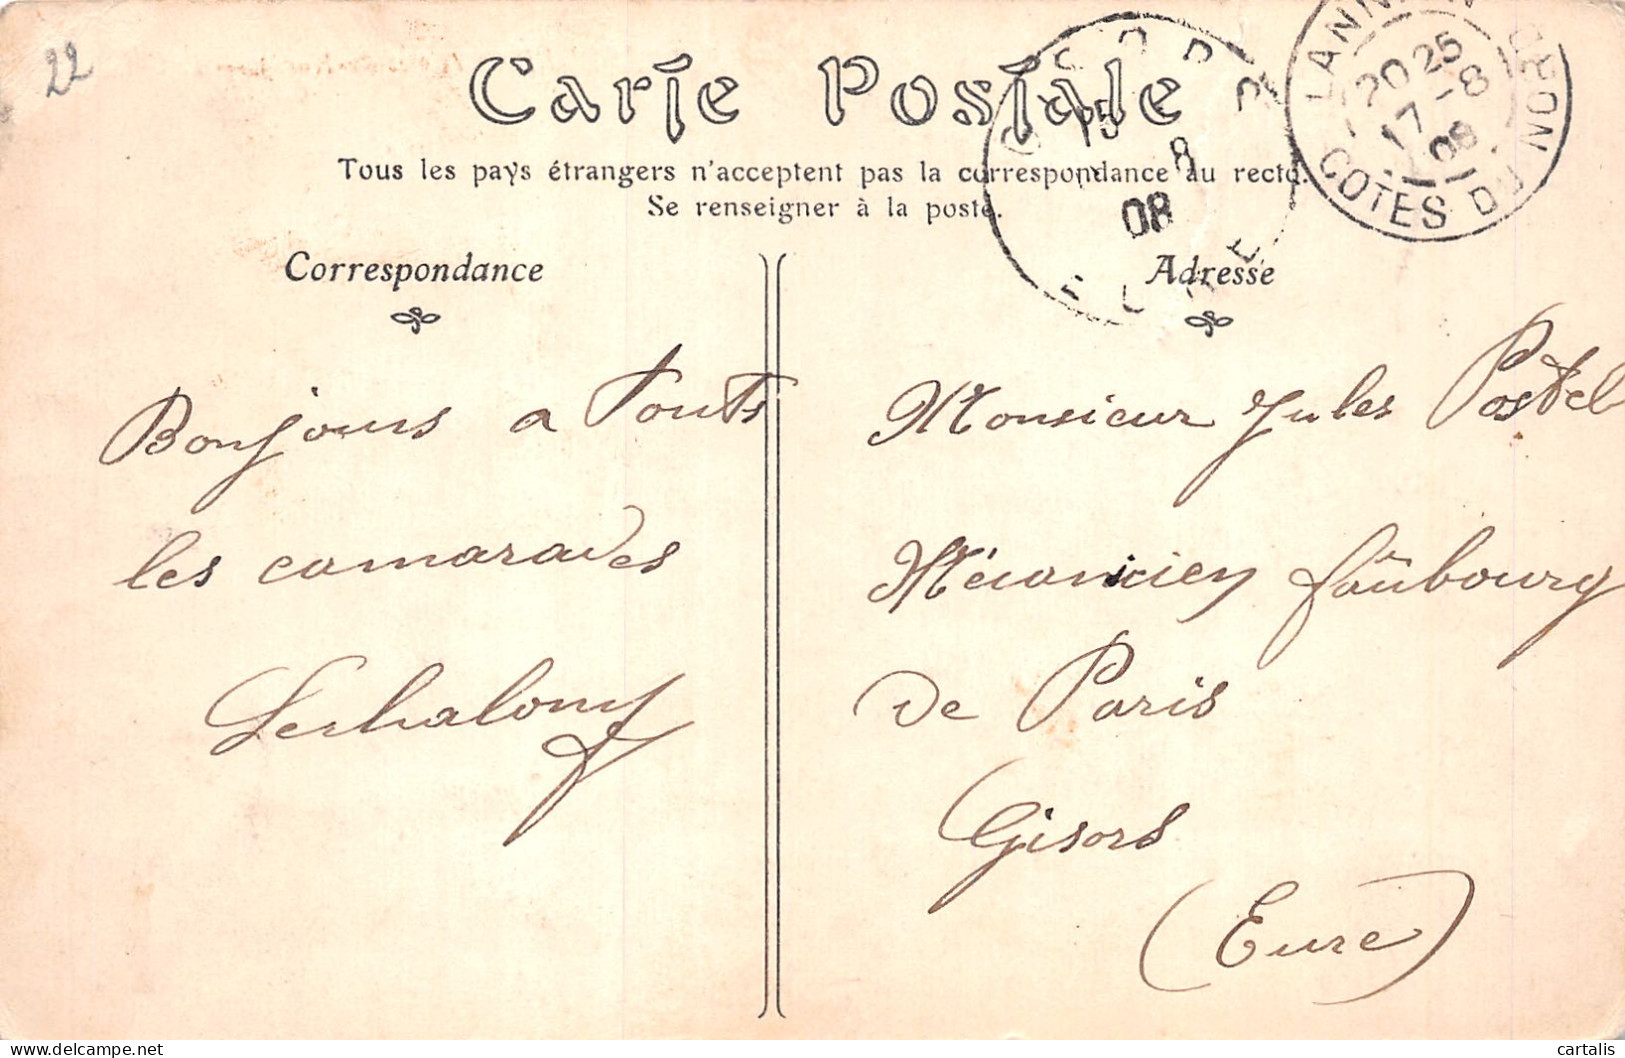 22
Carte Postale
Tous les pays étrangers n'acceptent pas la correspondance au recto.
Se renseigner à la poste.
LANNION
20 25
17-8
08
COTES DU NORD
8
08
EURE
Correspondance
Adresse
Bonjours a Touts
les camarades
Monsieur Jules Postel
Mécanicien faubourg
De Paris
Gisors
(Eure)
cartalis